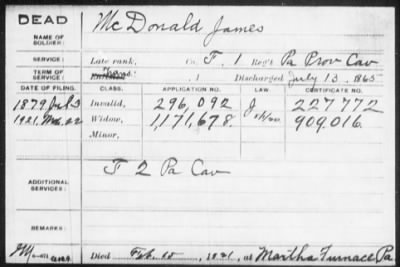 DEAD
NAME OF SOLDIER: McDonald James
SERVICE: Late rank, Co. F. 1 Reg't Pa Prov Cav
TERM OF SERVICE: , 1 Discharged July 13 1865
DATE OF FILING. CLASS. APPLICATION NO. LAW. CERTIFICATE NO.
1879, Jul 3 Invalid, 296,092 J 227772
1921, 22 Widow, 1,171,678. 909,016.
Minor,
ADDITIONAL SERVICES: F 2 Pa Cav
REMARKS:
Died Feb. 10, 1921, at Martha Furnace Pa